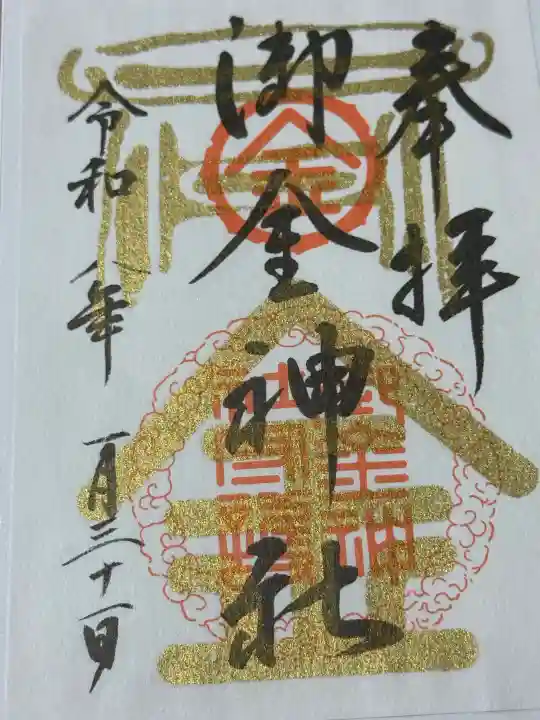 奉拝
御金神社
令和八年
一月三十一日
金